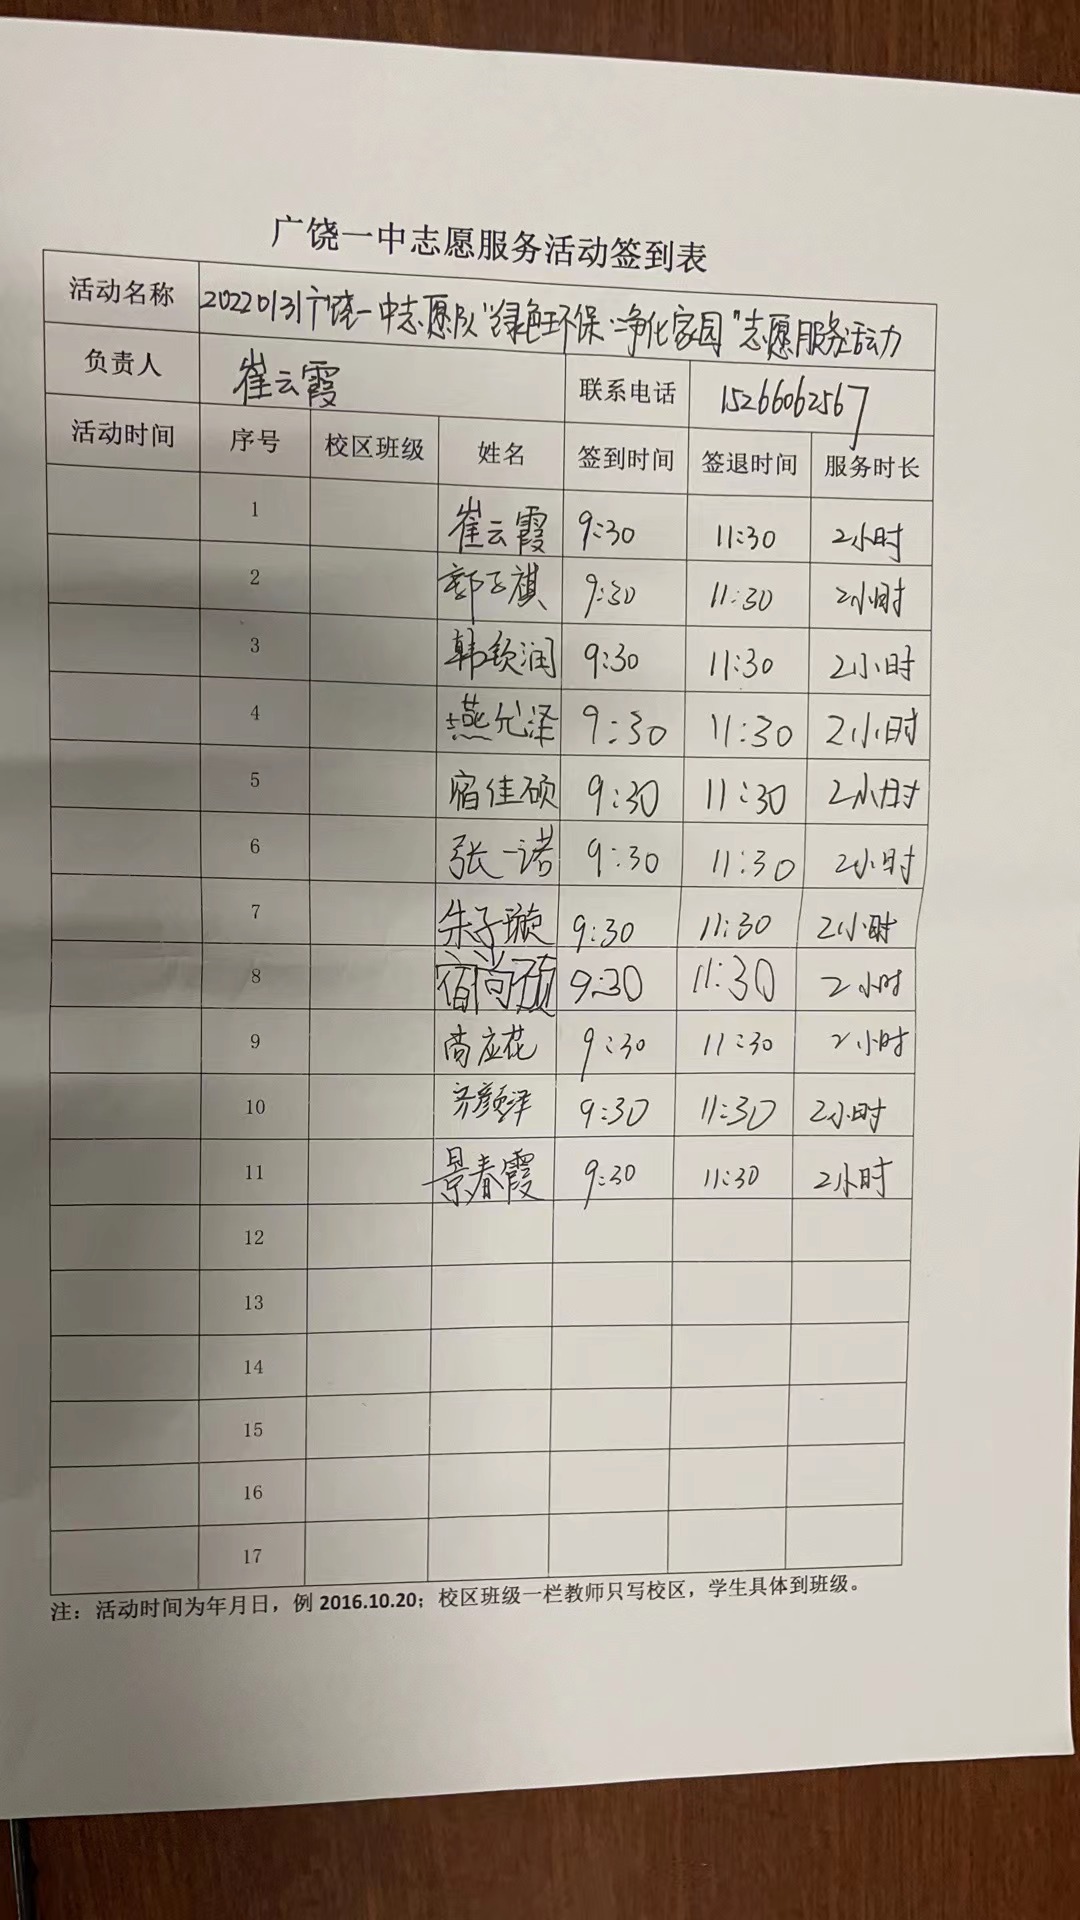 广饶一中志愿服务活动签到表
活动名称 20220131广饶一中志愿队"绿色环保·净化家园"志愿服务活动
负责人 崔云霞 联系电话 15266062567
活动时间 序号 校区班级 姓名 签到时间 签退时间 服务时长
1 崔云霞 9:30 11:30 2小时
2 郭子祺 9:30 11:30 2小时
3 韩钦润 9:30 11:30 2小时
4 燕允泽 9:30 11:30 2小时
5 宿佳硕 9:30 11:30 2小时
6 张一诺 9:30 11:30 2小时
7 朱子璇 9:30 11:30 2小时
8 宿尚颀 9:30 11:30 2小时
9 尚应花 9:30 11:30 2小时
10 齐颜泽 9:30 11:30 2小时
11 景春霞 9:30 11:30 2小时
12
13
14
15
16
17
注：活动时间为年月日，例 2016.10.20；校区班级一栏教师只写校区，学生具体到班级。